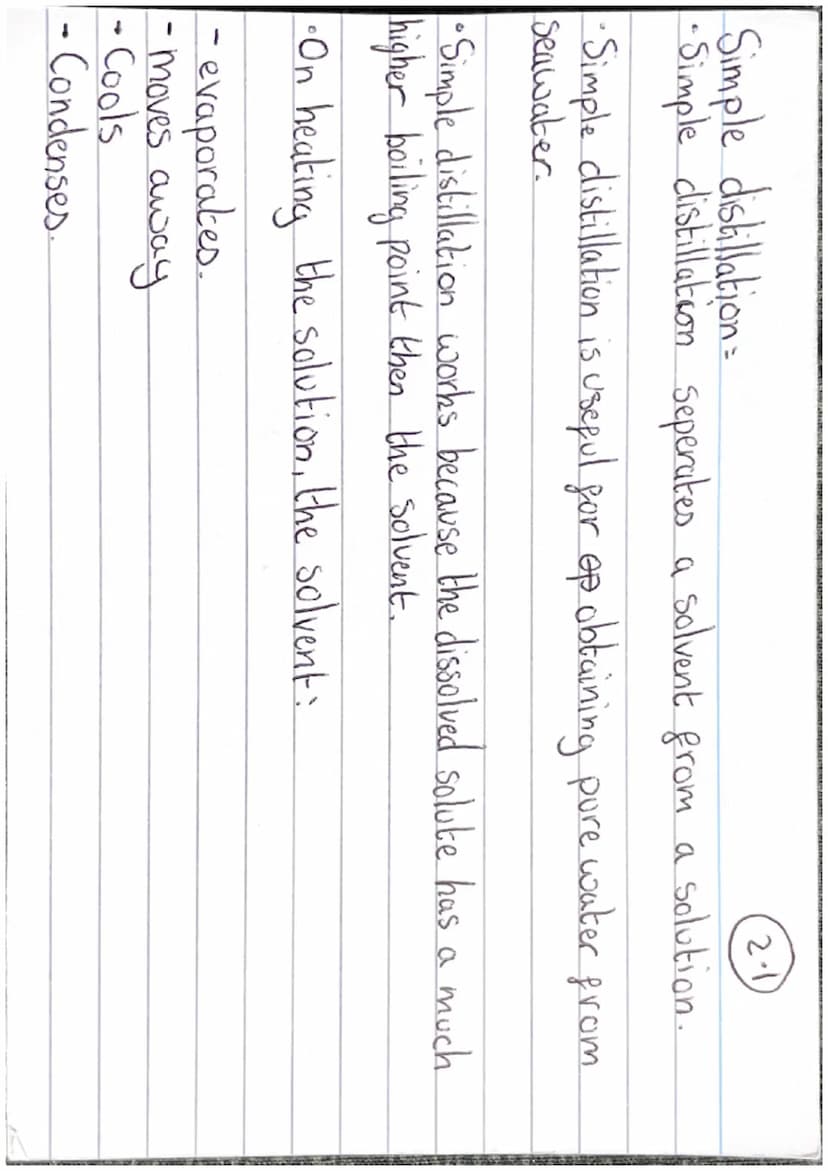 2.1
Simple distillation=
• Simple distillation seperates a solvent from a solution.
• Simple distillation is useful for op obtaining pure water from
seawater.
• Simple distillation works because the dissolved solute has a much
higher boiling point then the solvent.
• On heating the solution, the solvent:
- evaporates.
- moves away
- Cools
- Condenses.